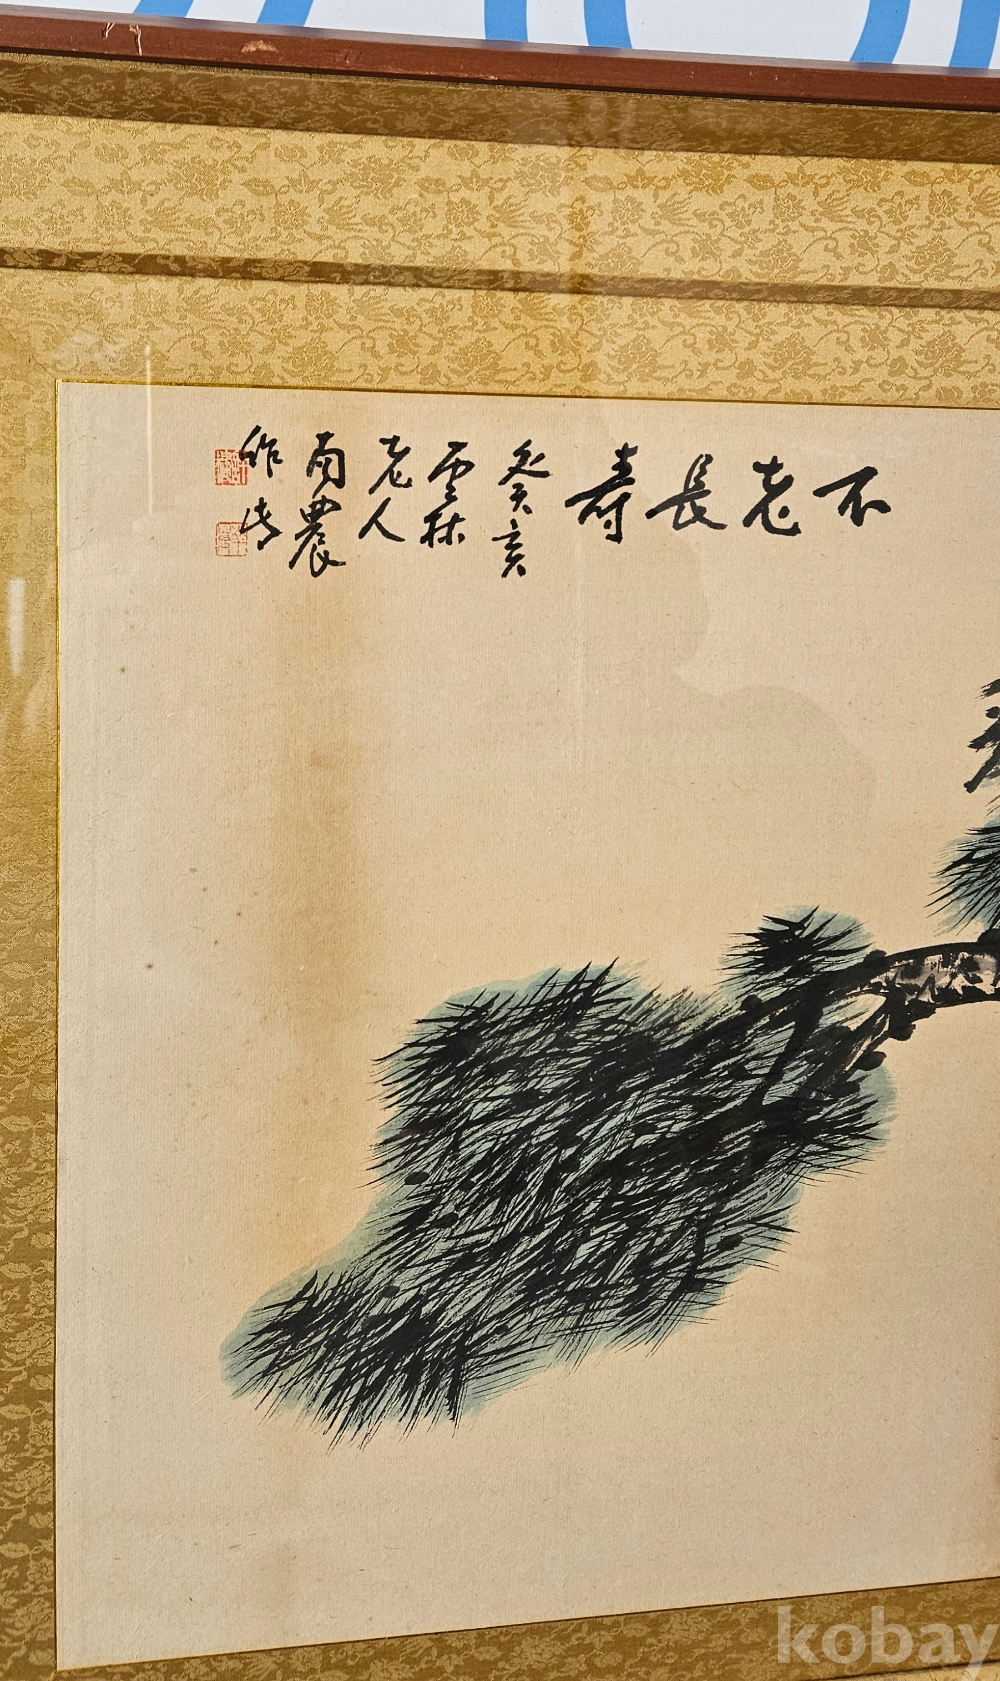 不老長壽
癸亥
雲林
老人
南農
作
kobay